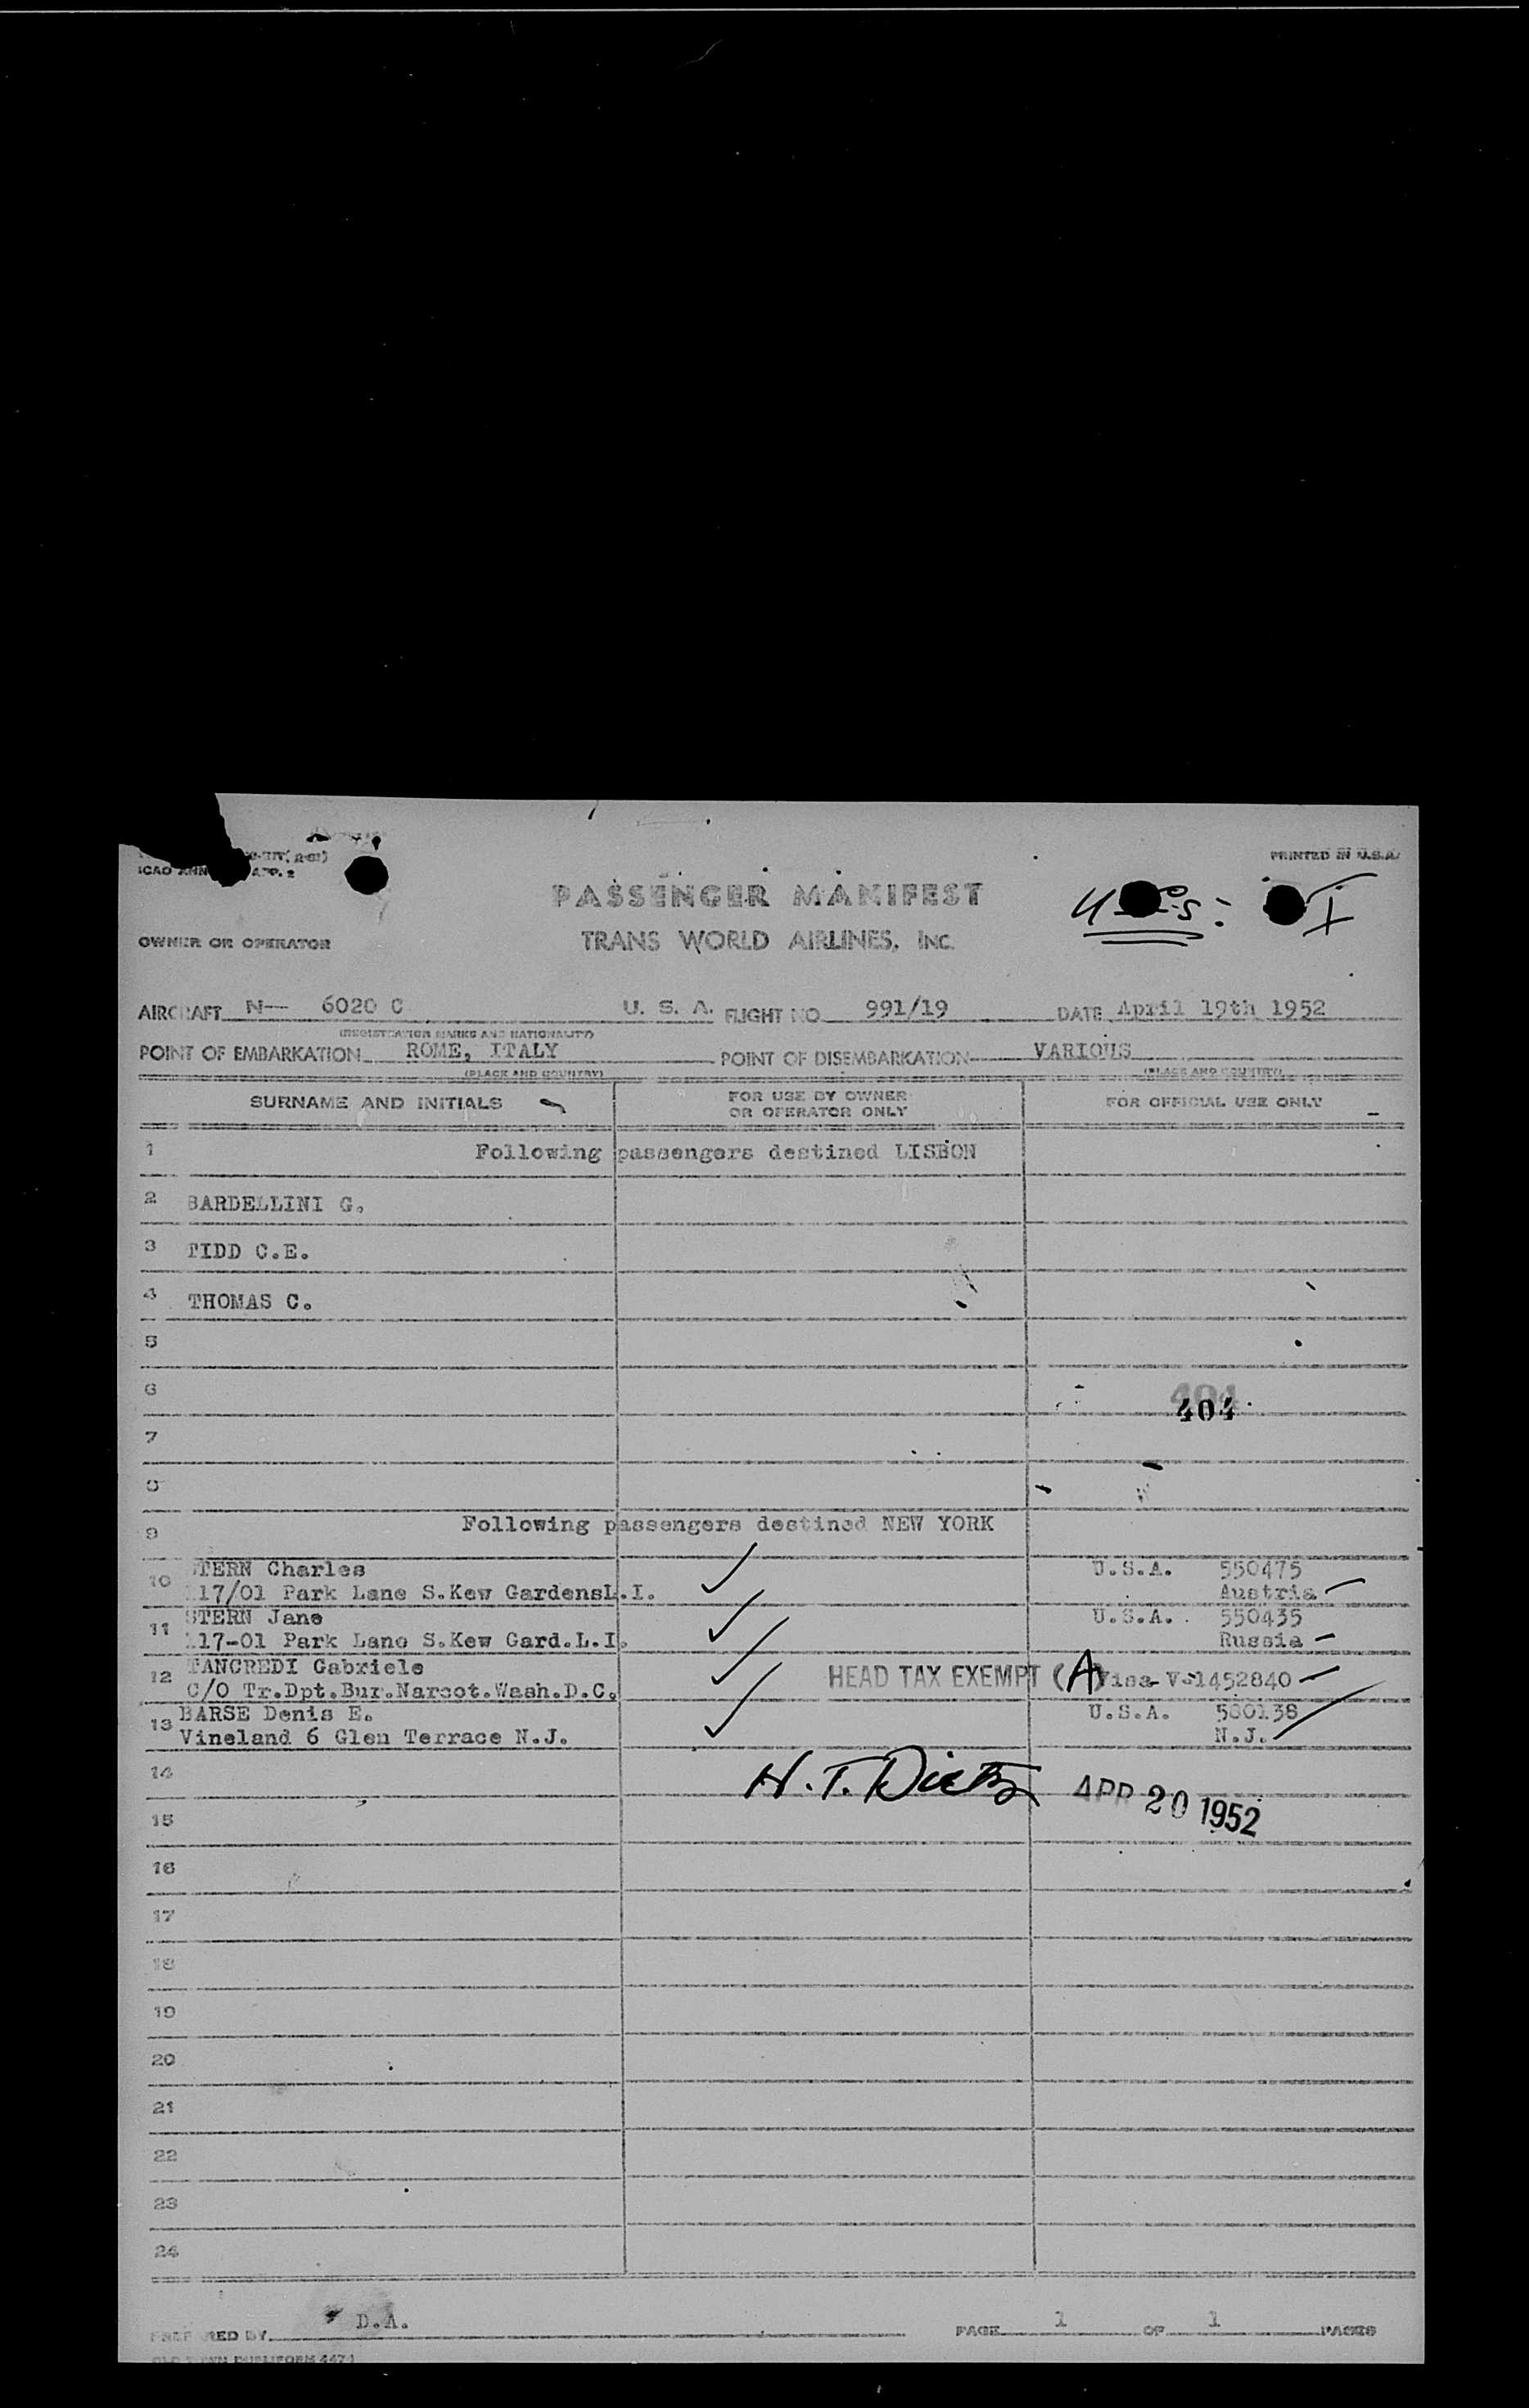 PRINTED IN U.S.A.
ICAO ANN APP. 2
PASSENGER MANIFEST
OWNER OR OPERATOR TRANS WORLD AIRLINES, INC.
AIRCRAFT N— 6020 C U. S. A. FLIGHT NO 991/19 DATE April 19th 1952
(REGISTRATION MARKS AND NATIONALITY)
POINT OF EMBARKATION ROME, ITALY POINT OF DISEMBARKATION VARIOUS
(PLACE AND COUNTRY) (PLACE AND COUNTRY)
SURNAME AND INITIALS FOR USE BY OWNER OR OPERATOR ONLY FOR OFFICIAL USE ONLY
1 Following passengers destined LISBON
2 BARDELLINI G.
3 TIDD C.E.
4 THOMAS C.
5
6 404
404
7
8
9 Following passengers destined NEW YORK
10 STERN Charles U.S.A. 550475
117/01 Park Lane S.Kew GardensL.I. Austria
11 STERN Jane U.S.A. 550435
117-01 Park Lane S.Kew Gard.L.I. Russia
12 TANCREDI Gabriele HEAD TAX EXEMPT (A) Visa V-1452840
C/O Tr.Dpt.Bur.Narcot.Wash.D.C.
13 BARSE Denis E. U.S.A. 580138
Vineland 6 Glen Terrace N.J. N.J.
14 H. T. Dietz APR 20 1952
15
16
17
18
19
20
21
22
23
24
PREPARED BY D.A. PAGE 1 OF 1 PAGES